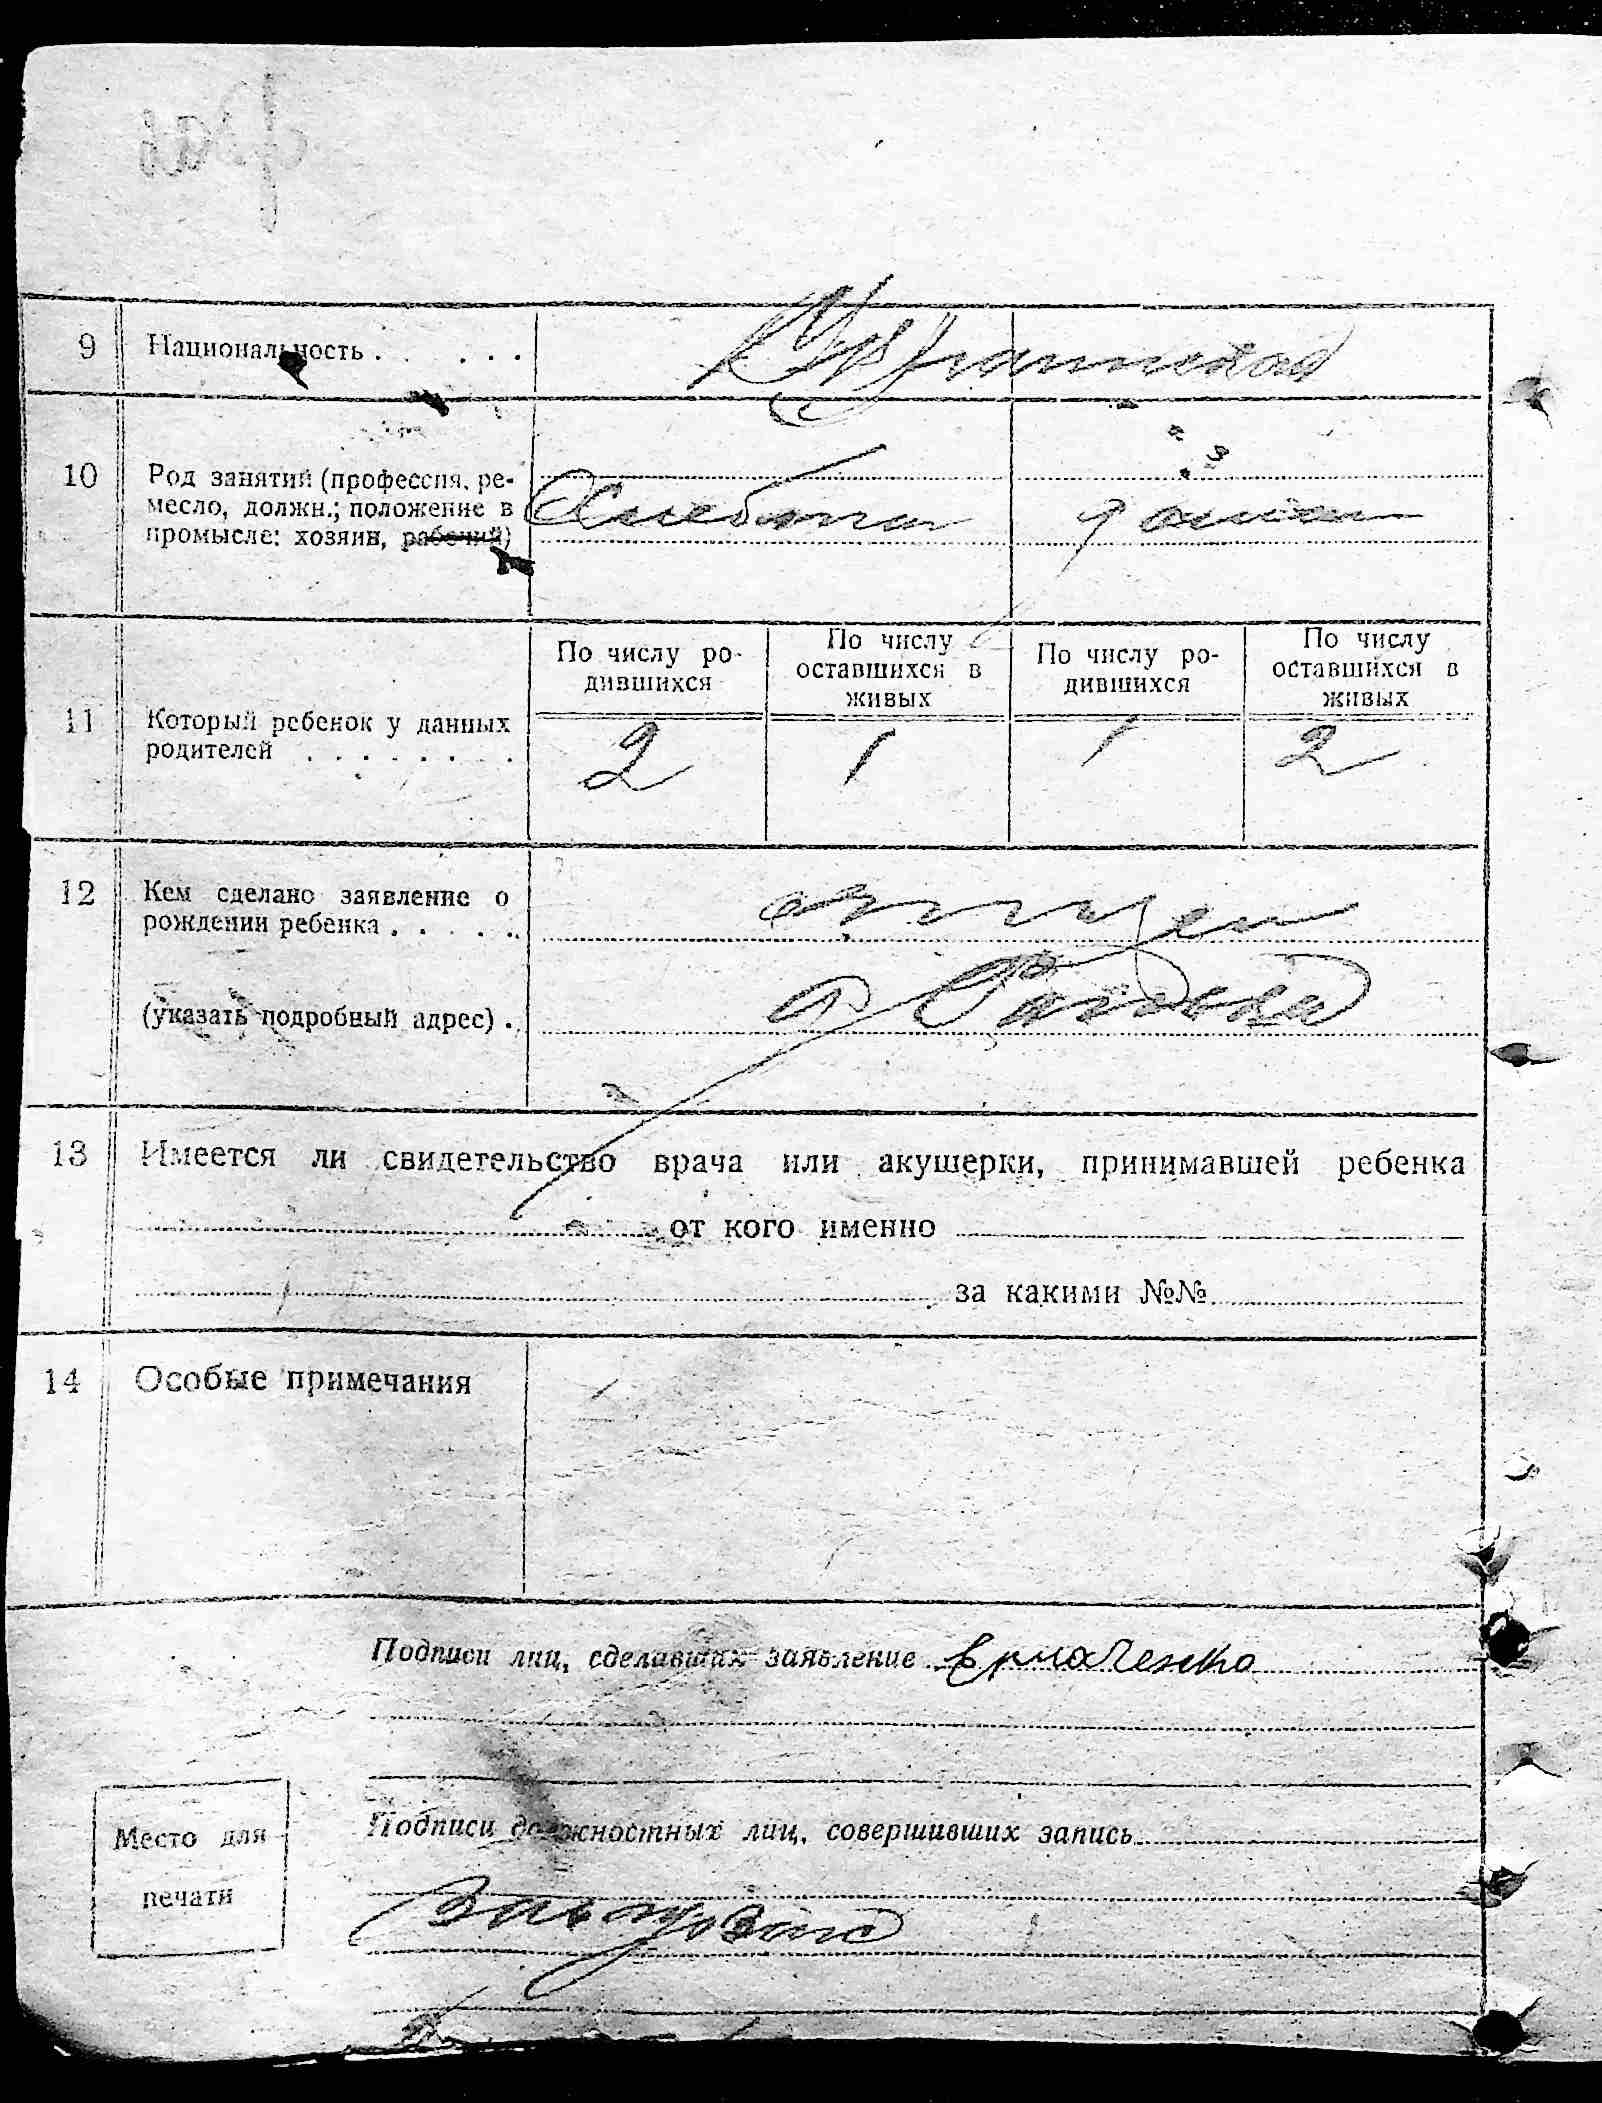 9 Национальность . . . . . Украинская
10 Род занятий (профессия, ре-
месло, должн.; положение в
промысле: хозяин, рабочий)
11 Который ребенок у данных
родителей . . . . . . .
По числу ро-
дившихся
По числу
оставшихся в
живых
По числу ро-
дившихся
По числу
оставшихся в
живых
2 1 1 2
12 Кем сделано заявление о
рождении ребенка . . . . . отцем
(указать подробный адрес) . .
13 Имеется ли свидетельство врача или акушерки, принимавшей ребенка
от кого именно
за какими №№
14 Особые примечания
Подписи лиц, сделавших заявление Ермаченко
Место для
печати
Подписи должностных лиц, совершивших запись